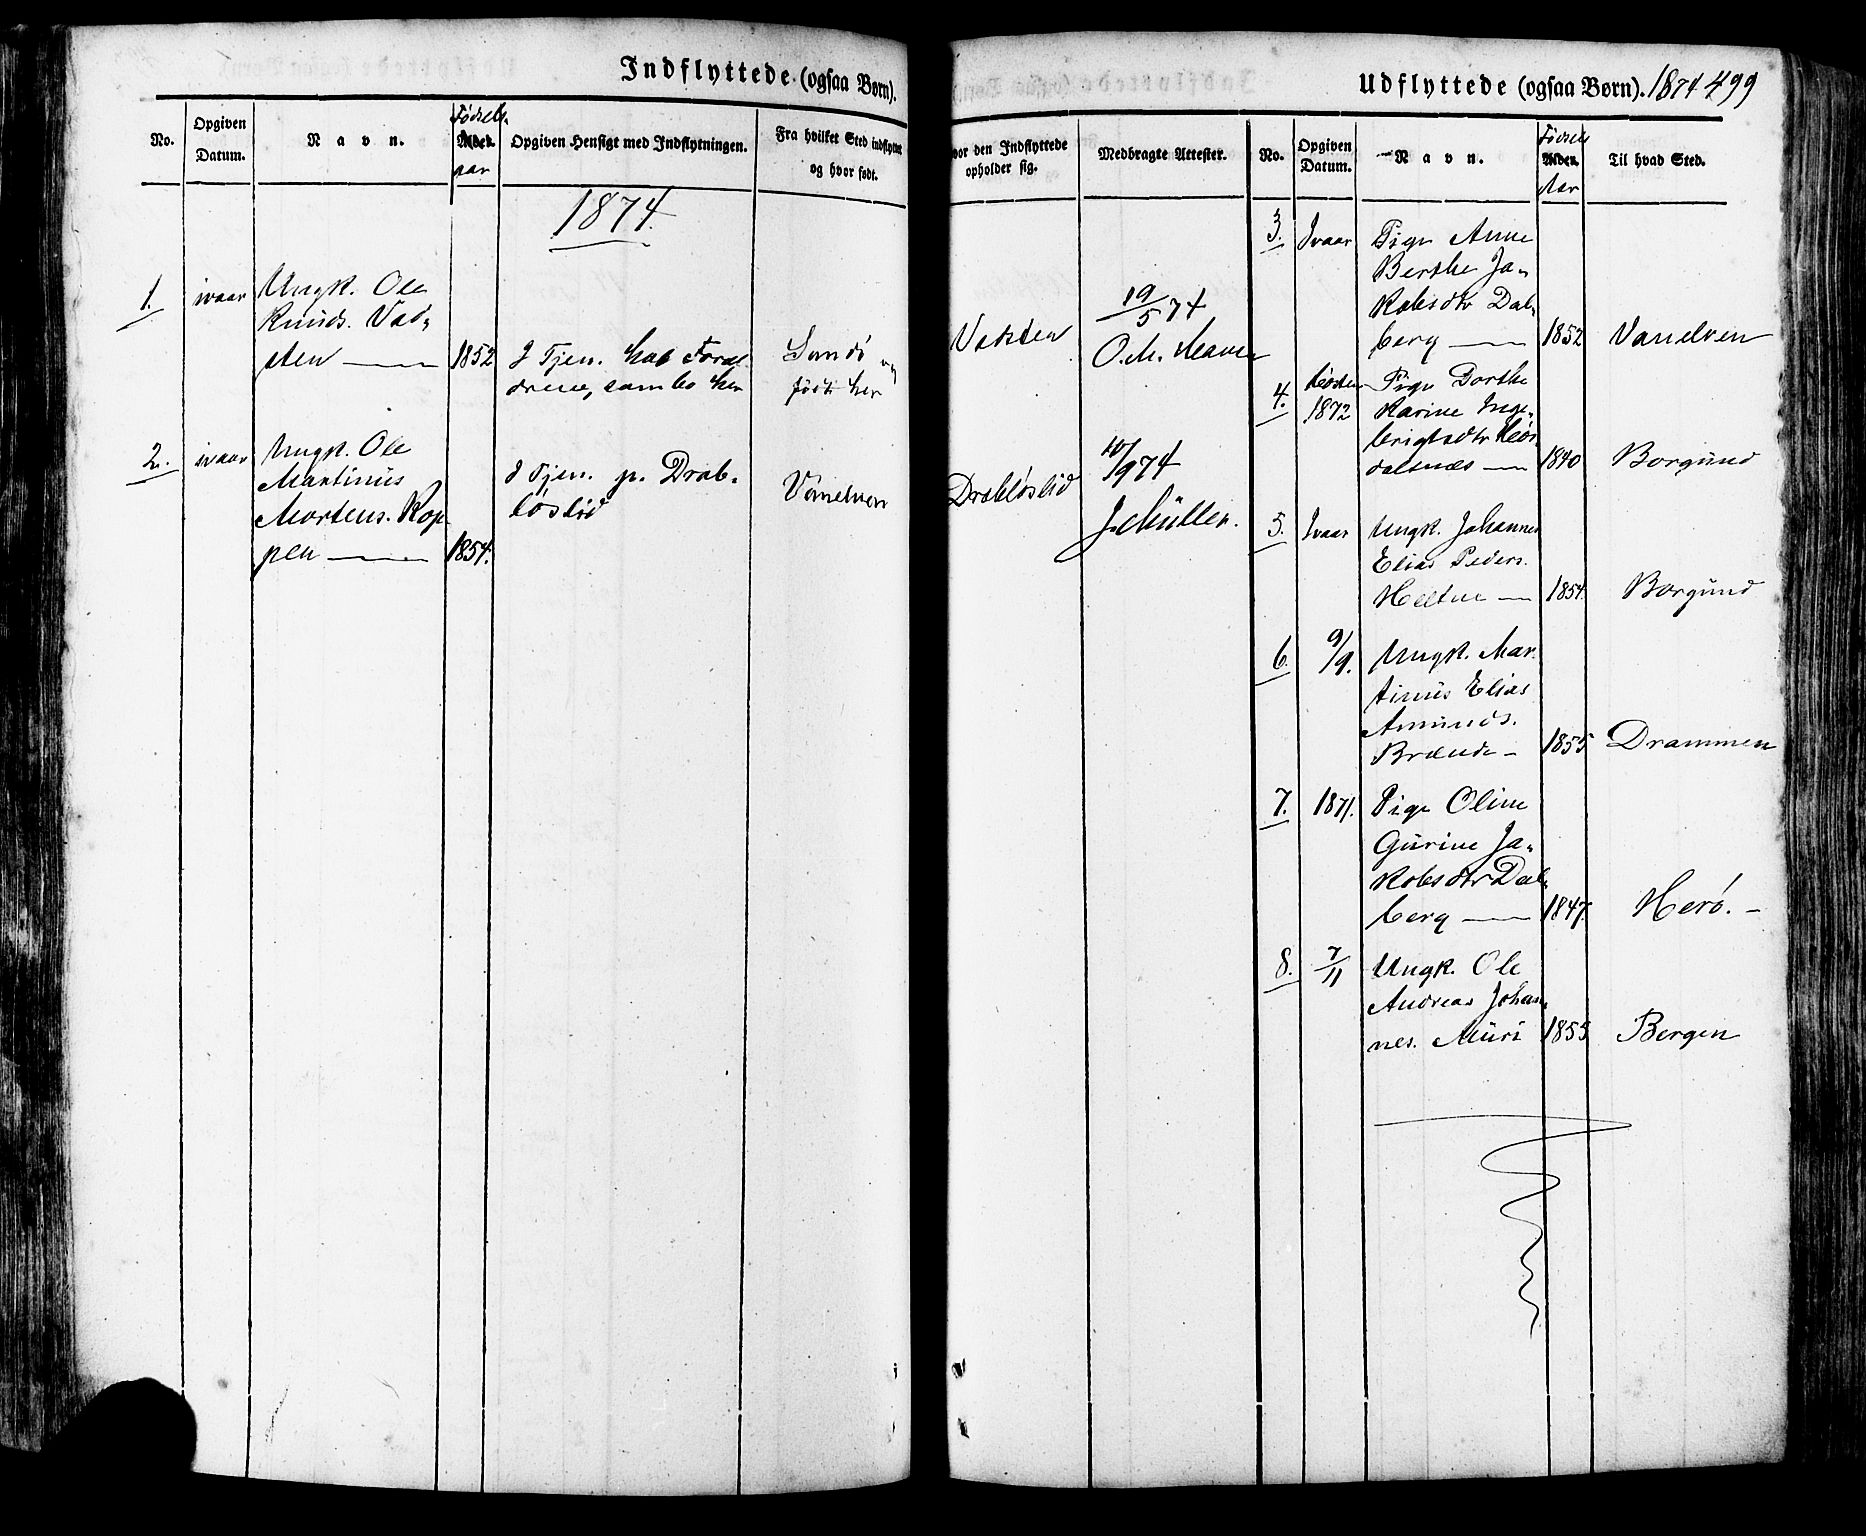 Indflyttede (ogsaa Børn).
No.
Opgiven Datum.
Navn.
Fødsels-
Alder.
aar
Opgiven Hensigt med Indflytningen.
Fra hvilket Sted indflyttet
og hvor født.
1874.
1. ivaar Ungk. Ole
Knuds. Vad-
sten — 1852 I Tjen. hos Foræl-
drene, som bo her
Sandø og
født her
2. ivaar Ungk. Ole
Martinus
Mortens. Kop-
pen — 1854.
I Tjen. p. Drab-
løslid
Vanelven
Udflyttede (ogsaa Børn). 1874 499
vor den Indflyttede
opholder sig.
Medbragte Attester.
No.
Opgiven
Datum.
Navn.
Fødsels
Alder.
Aar
Til hvad Sted.
Vadsten
19/5 74
Drabløslid
10/9 74
J. Müller.
3. Ivaar Pige Anne
Berthe Ja-
kobsdtr Dal-
berg — 1852 Vanelven
4. Høsten 1872 Pige Dorthe
Karine Inge-
brigtsdtr
dalsnæs — 1840 Borgund
5. Ivaar Ungk. Johannes
Elias Peders.
— 1854. Borgund
6. 9/9. Ungk. Mar-
tinus Elias
Amunds.
Brænde — 1855 Drammen
7. 1871. Pige Oline
Gurine Ja-
kobsdtr Dal-
berg — 1847. Herø. —
8. 7/11 Ungk. Ole
Andreas Johan-
nes. Muri 1855 Bergen